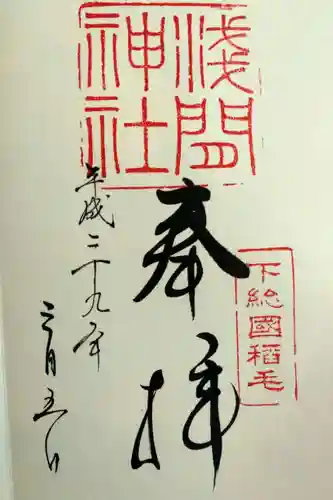 浅間神社
下総國稲毛
奉拝
平成二十九年
三月五日